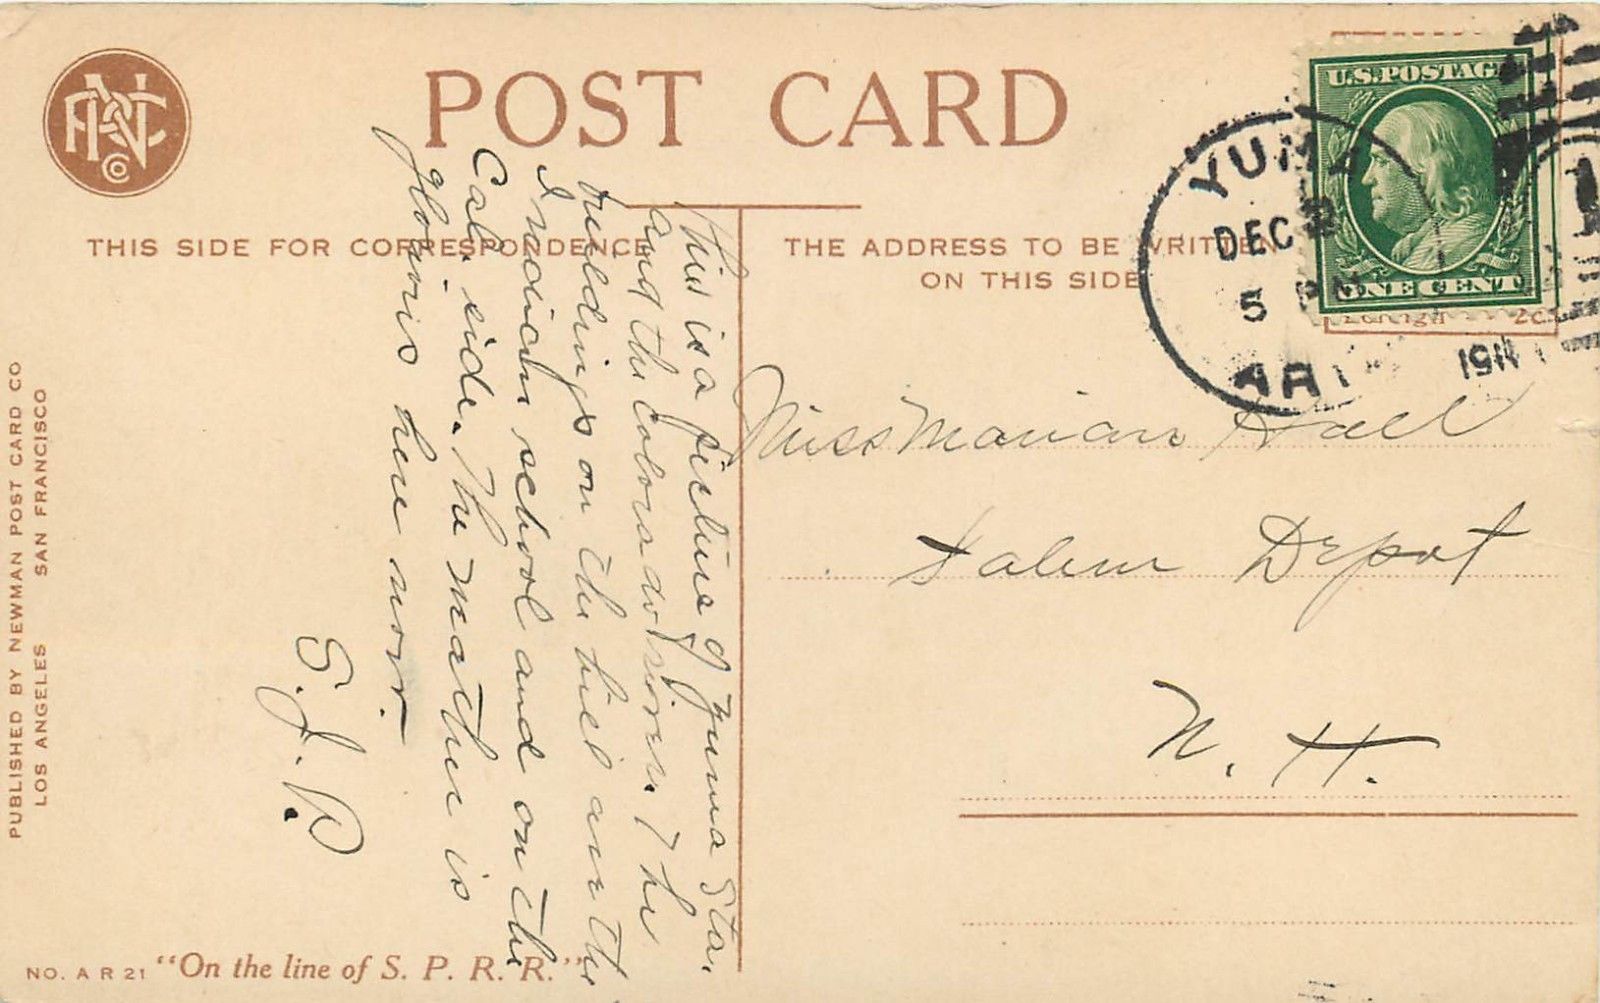 POST CARD
THIS SIDE FOR CORRESPONDENCE
THE ADDRESS TO BE WRITTEN
ON THIS SIDE
U.S. POSTAGE
ONE CENT
Foreign 2c
YUMA
DEC
5 PM
ARI
This is a picture of Yuma Sta.
and the Colorado river. The
buildings on the hill are the
Indian school and on the
Cal. side. The weather is
glorious here now.
S. J. P.
Miss Marian Hall
Salem Depot
N. H.
PUBLISHED BY NEWMAN POST CARD CO
LOS ANGELES SAN FRANCISCO
NO. A R 21 "On the line of S. P. R. R."